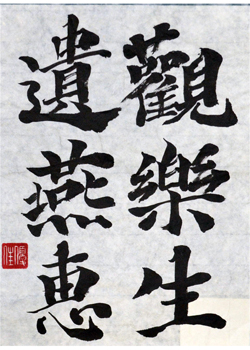 觀樂生
遺燕恵